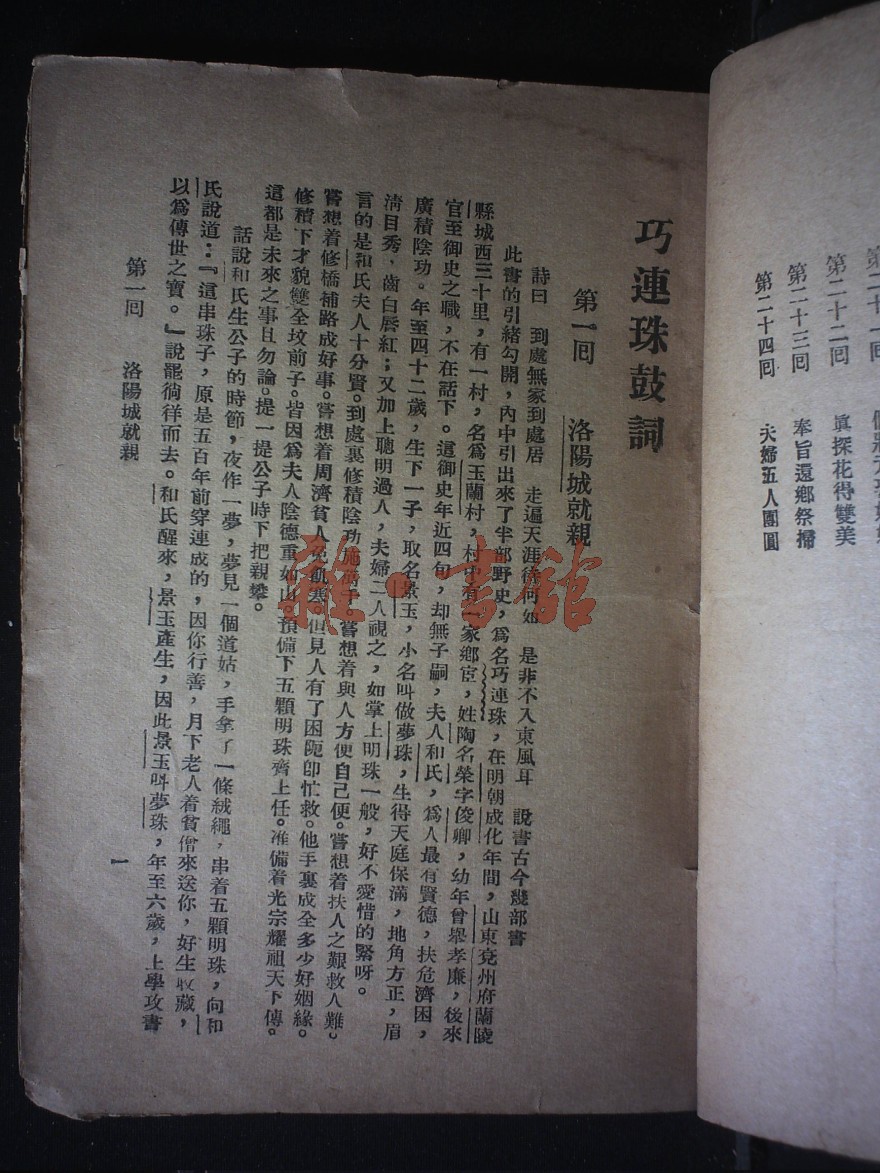 第二十二回　眞探花得雙美
第二十三回　奉旨還鄉祭掃
第二十四回　夫婦五人團圓
巧連珠鼓詞
第一回　洛陽城就親
詩曰　到處無家到處居　走遍天涯 何如　是非不入東風耳　說書古今幾部書
此書的引緒勾開，內中引出來了半部野史，爲名巧連珠，在明朝成化年間，山東兗州府蘭陵
縣城西三十里，有一村，名爲玉蘭村，村中有一家鄉宦，姓陶名榮字俊卿，幼年曾舉孝廉，後來
官至御史之職，不在話下。這御史年近四旬，却無子嗣，夫人和氏，爲人最有賢德，扶危濟困，
廣積陰功。年至四十二歲，生下一子，取名景玉，小名叫做夢珠，生得天庭保滿，地角方正，眉
淸目秀，齒白唇紅；又加上聰明過人，夫婦二人視之，如掌上明珠一般，好不愛惜的緊呀。
言的是和氏夫人十分賢。到處裏修積陰功施 。嘗想着與人方便自己便。嘗想着扶人之艱救人難。
嘗想着修橋補路成好事。嘗想着周濟貧人免飢寒。但見人有了困阨卽忙救。他手裏成全多少好姻緣。
修積下才貌雙全坟前子。皆因爲夫人陰德重如山。預備下五顆明珠齊上任。准備着光宗耀祖天下傳。
這都是未來之事且勿論。提一提公子時下把親攀。
話說和氏生公子的時節，夜作一夢，夢見一個道姑，手拿了一條絨繩，串着五顆明珠，向和
氏說道：『這串珠子，原是五百年前穿連成的，因你行善，月下老人着貧僧來送你，好生收藏，
以爲傳世之寶。』說罷徜徉而去。和氏醒來，景玉產生，因此景玉叫夢珠，年至六歲，上學攻書
第一回　洛陽城就親
一
雜·書館